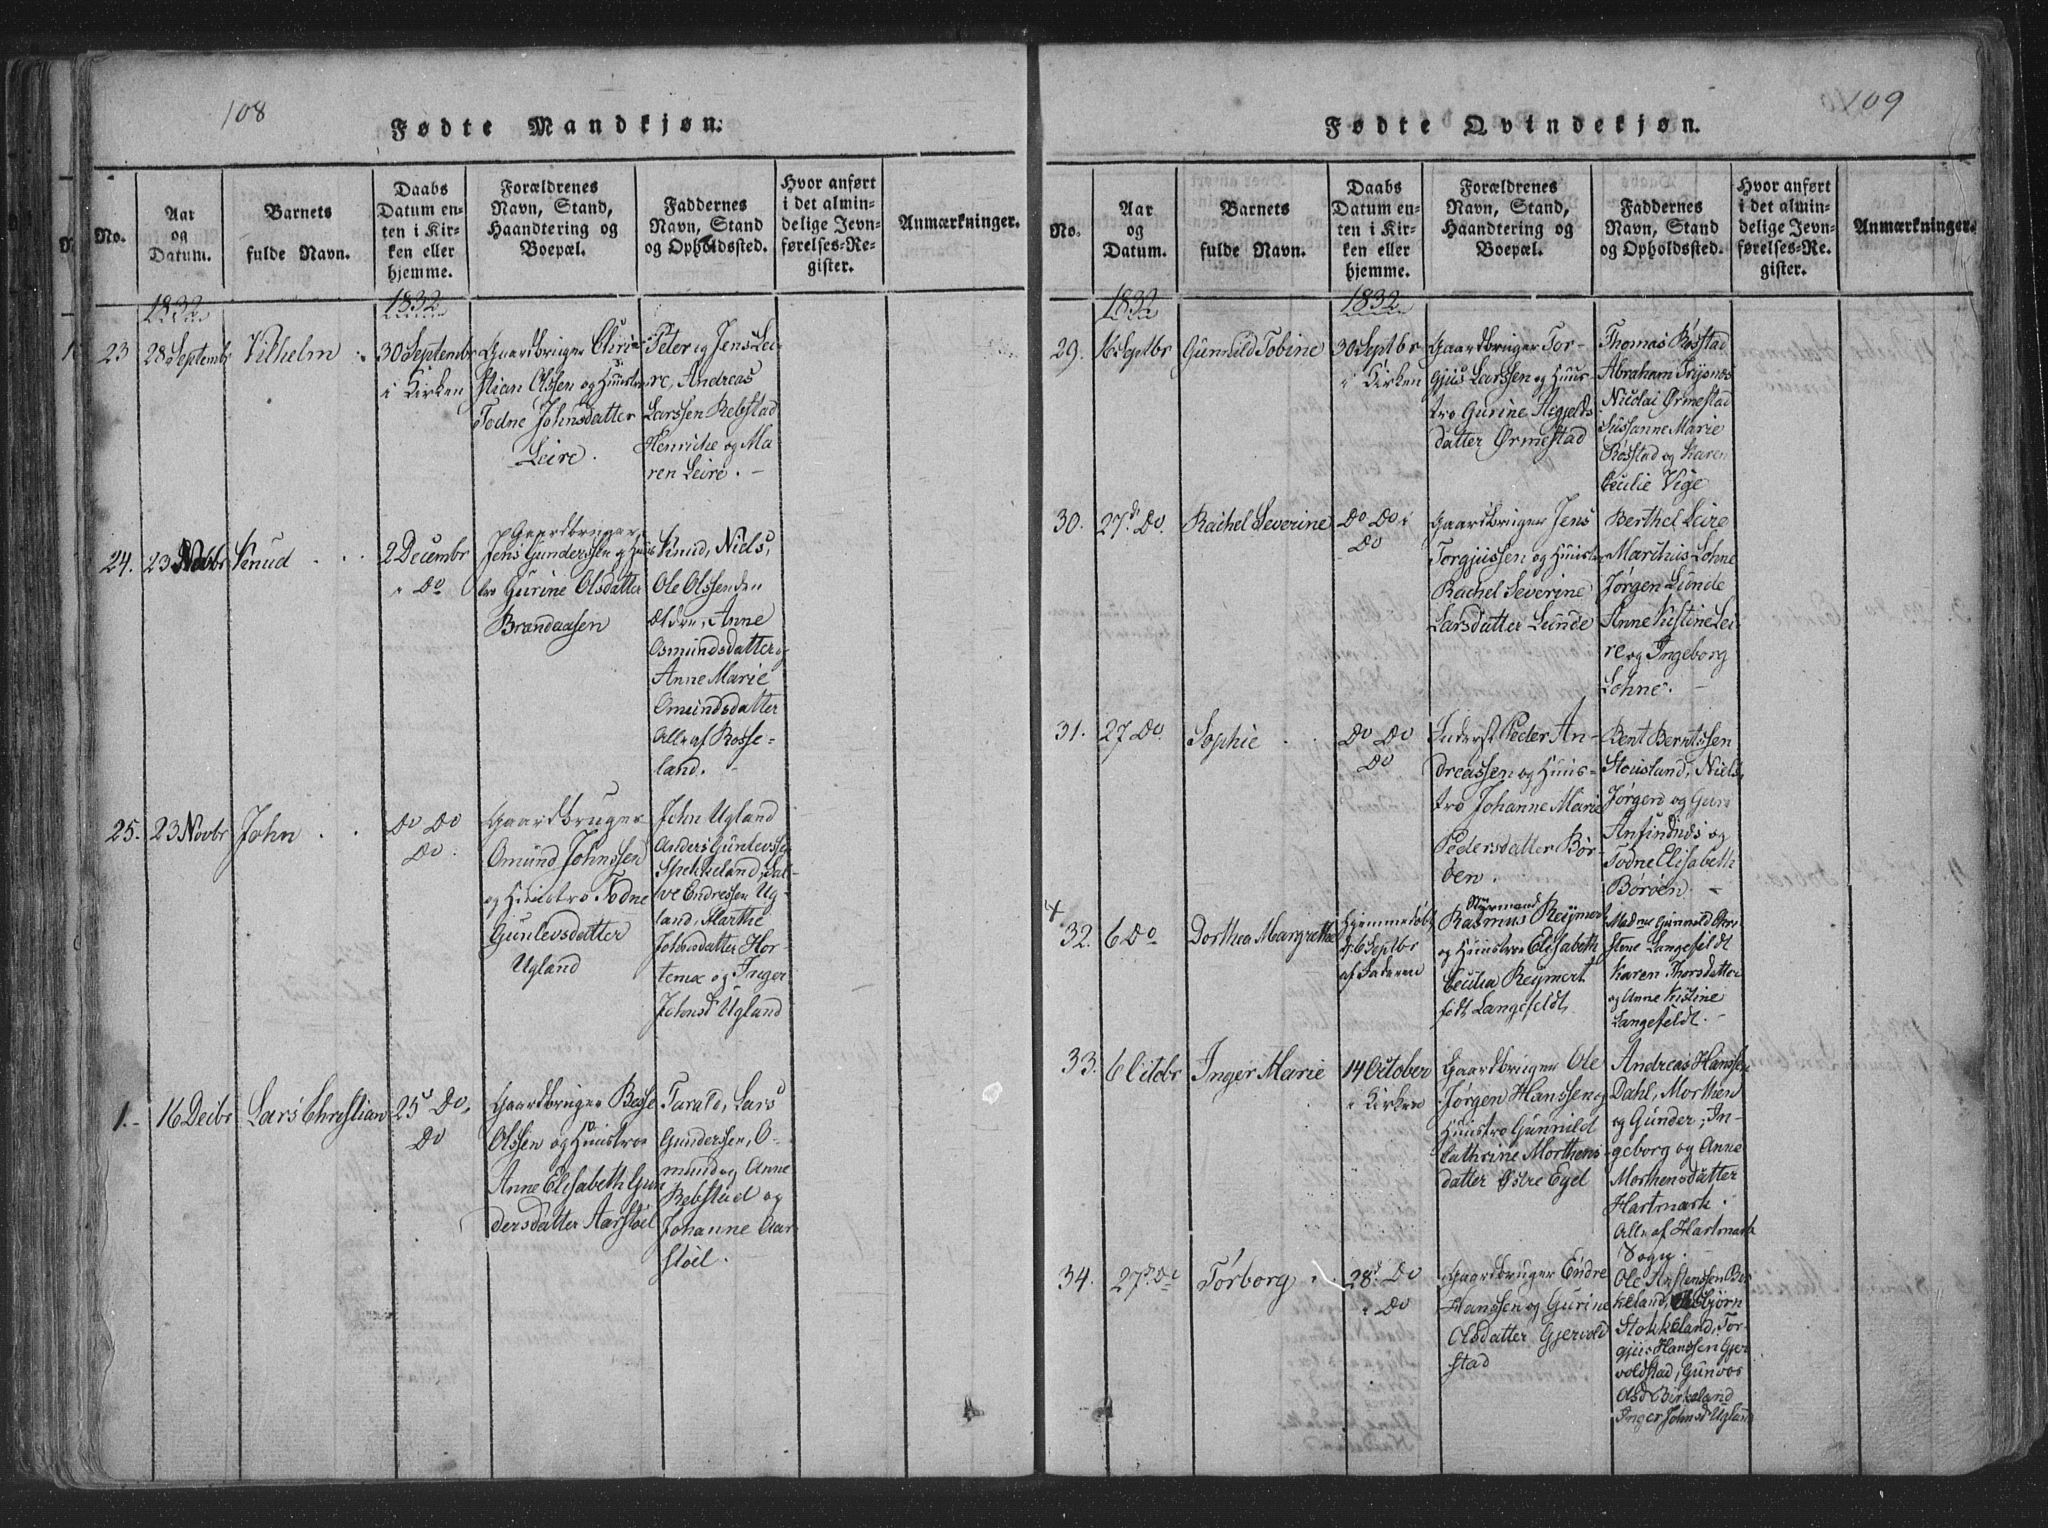 108
Fødte Mandkjøn.
No.
Aar
og
Datum.
Barnets
fulde Navn.
Daabs
Datum en-
ten i Kir-
ken eller
hjemme.
Forældrenes
Navn, Stand,
Haandtering og
Boepæl.
Faddernes
Navn, Stand
og Opholdssted.
Hvor anført
i det almin-
delige Jevn-
førelses-Re-
gister.
Anmærkninger.
1832
1832
23
28 Septembr
Vilhelm
30 Septembr
i Kirken
Gaardbruger Chri-
stian Olssen og Huustro
Todne Johnsdatter
Leire.
Peter og Jens Lei-
re, Andreas
Larssen Rebstad
Henriche og Ma
ren Leire. -
24.
23 Novbr
Knud
2 Decembr
i Do
Gaardbruger
Jens Gunderssen og Huus
tro Gurine Olsdatter
Brandaasen
Knud, Niels,
Ole Olssen den
Ældre, Anne
Osmundsdatter og
Anne Marie
Omundsdatter
Alle af Rosse-
land. -
25.
23 Novbr
John
Do Do
Do.
Gaardbruger
Omund Johnssen
og Huustro Todne
Gunlevsdatter
Ugland
John Ugland
Anders Gunlevssen
Stokkeland, Sal-
ve Endressen Ug-
land, Marthe
Johnsdatter Hor-
temæ og Inger
Johnsd Ugland
1.-
16 Decbr
Lars Christian
25 d Do.
Do
Gaardbruger Besse
Olssen og Huustro
Anne Elisabeth Gun
dersdatter Aarstøel
Tarald, Lars
Gunderssen, O-
mund og Anne
Rebstad og
Johanne Aar-
støel.
109
Fødte Qvindekjøn.
No.
Aar
og
Datum.
Barnets
fulde Navn.
Daabs
Datum en-
ten i Kir-
ken eller
hjemme.
Forældrenes
Navn, Stand,
Haandtering og
Boepæl.
Faddernes
Navn, Stand
og Opholdssted.
Hvor anført
i det almin-
delige Jevn-
førelses-Re-
gister.
Anmærkninger.
1832
1832
29.
16 Septbr
Gunnild Tobine
30 Septbr
i Kirken
Gaardbruger Tor-
gjus Larssen og Huus-
tro Gurine
datter Ørmestad
Thomas Røsstad
Abraham Trysnæs
Nicolai Ørmestad
Susanne Marie
Røsstad og Karen
Cecilie Vige
30.
27. d Do
Rachel Severine
Do Do i
Do
Gaardbruger Jens
Torgjussen og Huustro
Rachel Severine
Larsdatter Lunde
Berthel Leire
Marthis Lohne
Jørgen Lunde
Anne Kistine Lei-
re og Ingeborg
Lohne. -
31.
27 Do.
Sophie
Do Do
Do
Inderst Peder An-
dreassen og Huus-
tro Johanne Marie
Pedersdatter Bor-
øen.
Bent Berntssen
Stousland, Niels,
Jørgen og Guri
Anfindnæs og
Todne Elisabeth
Børøen. -
32.
6 Do
Dorthea Margrethe
Hjemmedøbt
d. 6 Septbr
af Faderen
Styrmand
Rasmus Reymert
og Huustro Elisabeth
Cecilia Reymert
født Langefeldt
Madme Gunnild Chri-
stine Langefeldt
Karen Thorsdatter
og Anne Kistine
Langefeldt. -
33.
6 Octbr
Inger Marie
14 October
i Kirken
Gaardbruger Ole
Jørgen Hanssen og
Huustro Gunnild
Cathrine Morthens
datter Østre Egel
Andreas Hanssen
Dahl, Morthen
og Gunder, In-
geborg og Anne
Morthensdatter
Hartmark.
Alle af Hartmark
Sogn.
34.
27. d Do
Torborg
28. d Do
i Do
Gaardbruger Endre
Hanssen og Gurine
Olsdatter Gjervold
stad
Ole Tarstenssen Bir
keland, Asbjørn
Stokkeland, Tor-
gjus Hanssen Gjer
voldstad, Gunvor
Olsd Birkeland
Inger Johnsd Ugland